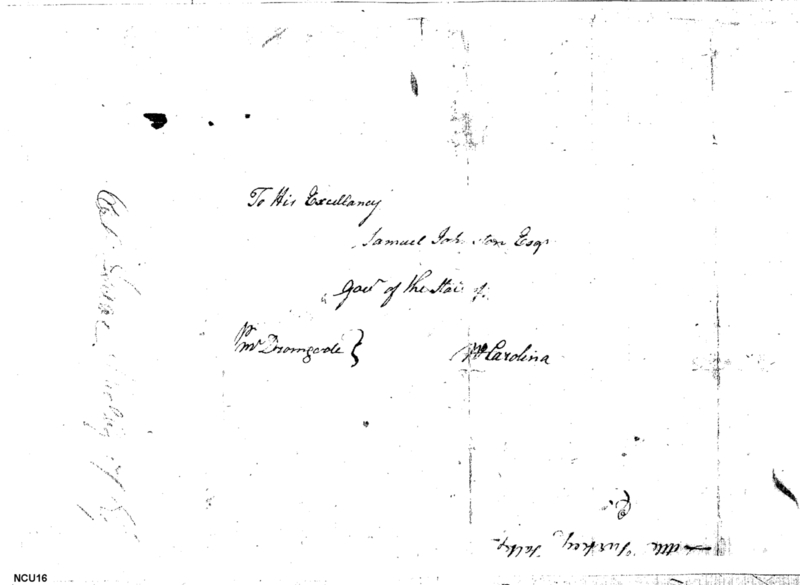 To His Excellancy
Samuel Johnston Esqr
Govr of the State of
pr
Mr Dromgoole }
No Carolina
Little Turkey Talks
NCU16